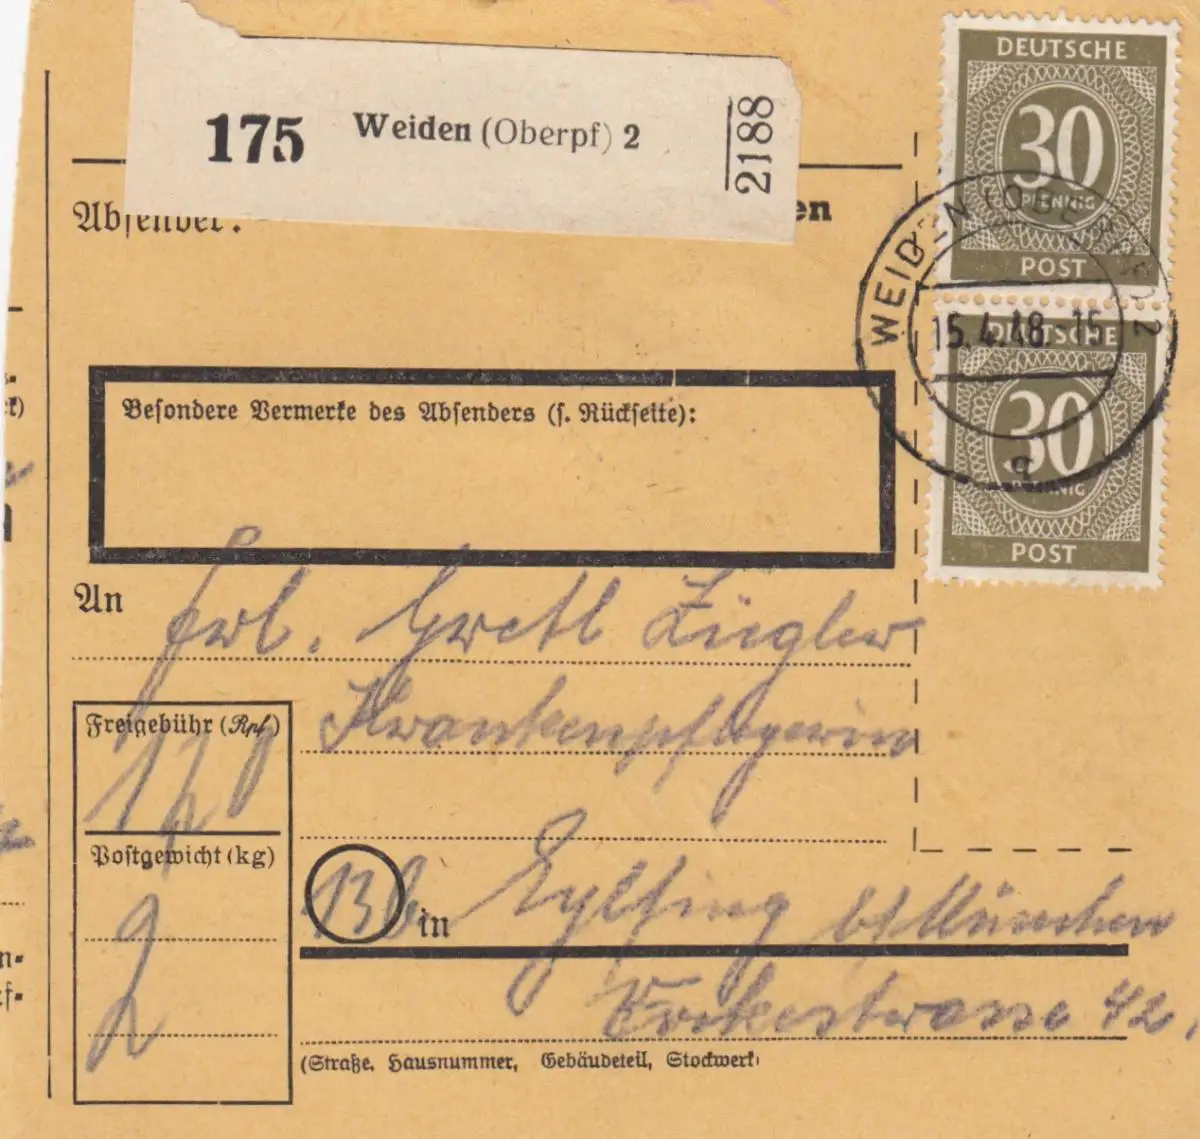 175 Weiden (Oberpf) 2 2188
DEUTSCHE
30
PFENNIG
POST
DEUTSCHE
30
PFENNIG
POST
15.4.48. 15
Absender:
en
Besondere Vermerke des Absenders (s. Rückseite):
An
Frl. Gretl Ziegler
Krankenpflegerin
Freigebühr (Rpf)
Postgewicht (kg)
2
13b in Eglfing b/München
42,
(Straße, Hausnummer, Gebäudeteil, Stockwerk)